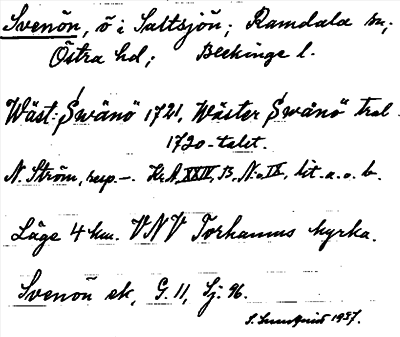 Svenön, ö i Saltsjön; Ramdala sn;
Östra hd; Blekinge l.
Wäst: Swänö 1721, Wäster Swånö trol.
1720-talet.
N. Ström, resp. –. Kr.A. XXIII, 13, N:o IX, lit. a. o. b.
Läge 4 km. VNV Torhamns kyrka.
Svenön ek, G. 11, Sj. 96.
S. Lundquist 1937.